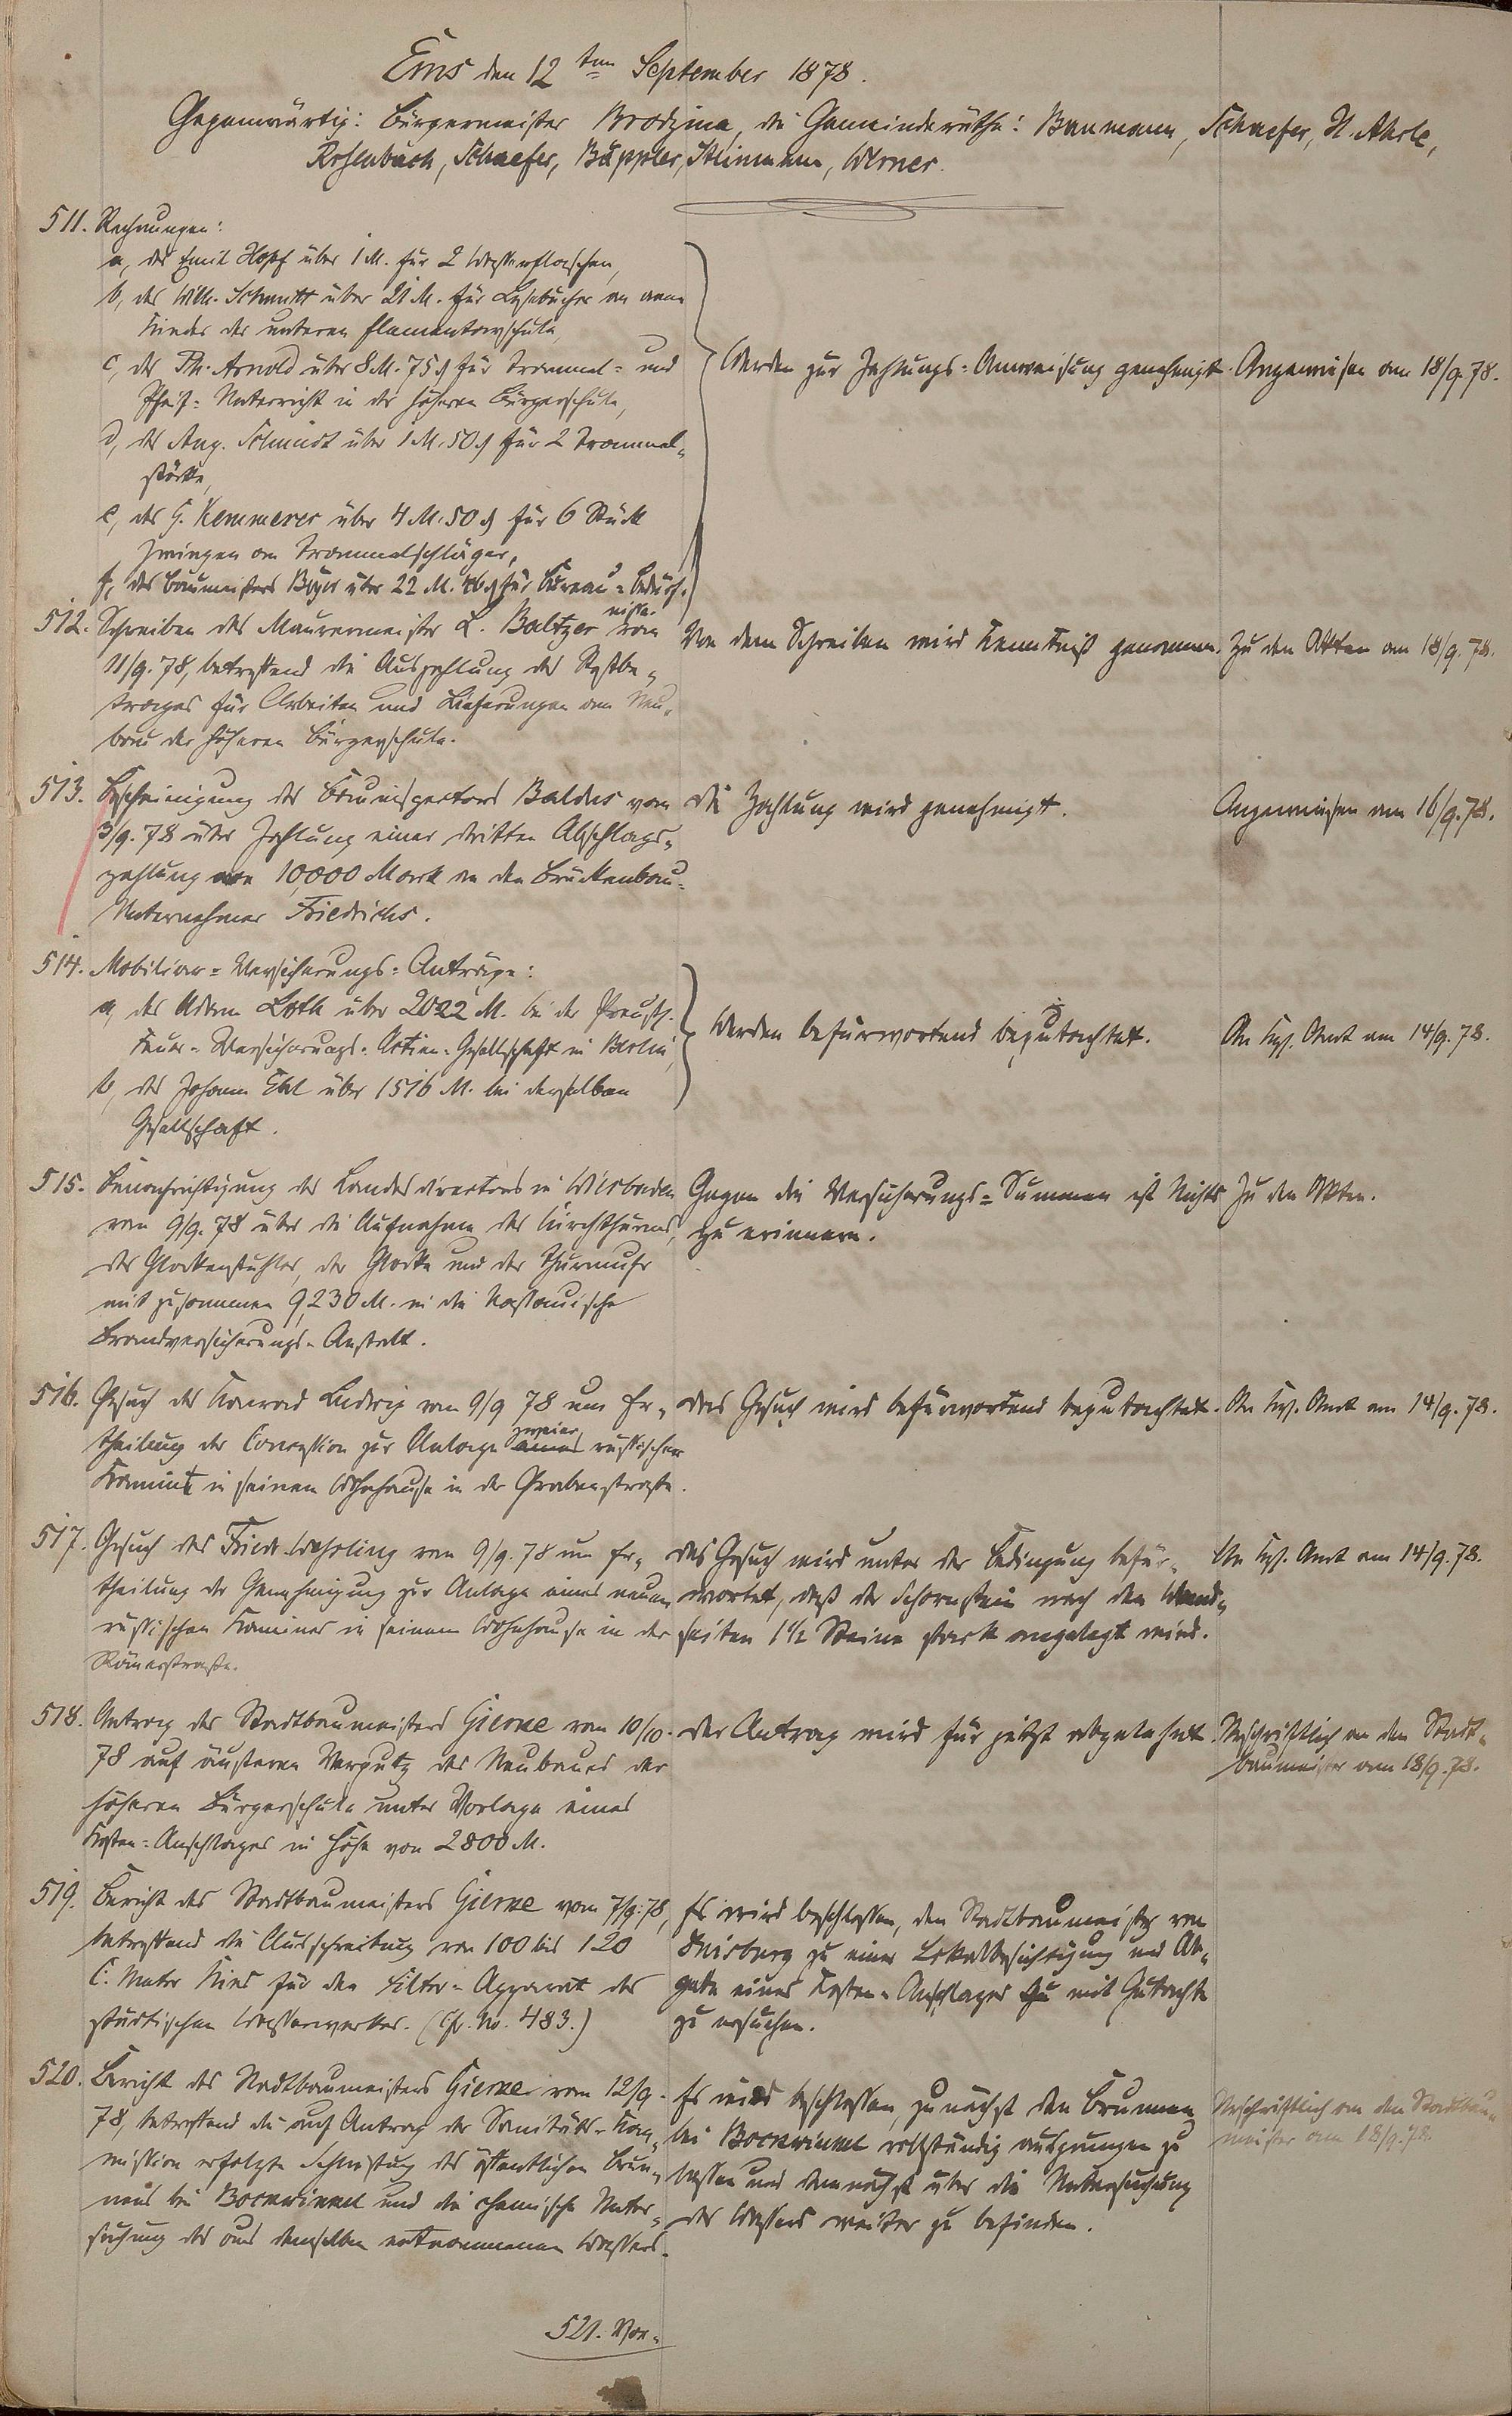 Ems den 12ten September 1878.
Gegenwärtig: Bürgermeister die Gemeinderäthe: Baumann, Schaefer, H. Ahrle,
Rosenbach, Schaefer, Bäppler, Werner.
511. Rechnungen:
a, des Emil Hopf über 1 M. für 2 Wasserflaschen,
b, des Wilh. Schmitt über 21 M. für Lesebücher an arme
Kinder der unteren Elementarschule,
c, des Th. Arnold über 8 M. 75 ₰ für Trommel- und
Pfeif-Unterricht in der höheren Bürgerschule,
d, des Aug. Schmidt über 1 M. 50 ₰ für 2 Trommel-
stöcke,
e, des G. Kemmerer über 4 M. 50 ₰ für 6 Stück
Zwingen an Trommelschläger,
f, des Baumeisters über 22 M. für Bureau-Bedürf-
nisse.
Werden zur Zahlungs-Anweisung genehmigt.
Angewiesen am 18/9. 78.
512. Schreiben des Maurermeister L. Baltzer vom
11/9. 78, betreffend die Auszahlung des Restbe-
trages für Arbeiten und Lieferungen am Neu-
bau der höheren Bürgerschule.
Von dem Schreiben wird Kenntniß genommen.
Zu den Akten am 18/9. 78.
513. Bescheinigung des Bauinspectors Baldus vom
3/9. 78 über Zahlung einer dritten Abschlags-
zahlung von 10,000 Mark an den Brückenbau-
Unternehmer Friedrichs.
Die Zahlung wird genehmigt.
Angewiesen am 16/9. 78.
514. Mobiliar-Versicherungs-Anträge:
a, des Adam Loth über 2022 M. bei der Preuß.
Feuer-Versicherungs-Actien-Gesellschaft in Berlin,
b, des Johann Ebel über 1516 M. bei derselben
Gesellschaft.
Werden befürwortend begutachtet.
An Kgl. Amt am 14/9. 78.
515. Benachrichtigung des Landesdirectors in Wiesbaden
vom 9/9. 78 über die Aufnahme des Kirchthurms,
des Glockenstuhles, der Glocke und der Thurmuhr
mit zusammen 9,230 M. in die Nassauische
Brandversicherungs-Anstalt.
Gegen die Versicherungs-Summen ist Nichts
zu erinnern.
Zu den Akten.
516. Gesuch des Konrad Ludwig vom 9/9 78 um Er-
theilung der Concession zur Anlage eines zweier russischen
Kamine in seinem Wohnhause in der Grabenstraße.
Das Gesuch wird befürwortend begutachtet.
An Kgl. Amt am 14/9. 78.
517. Gesuch des Friedr. Wehrling vom 9/9. 78 um Er-
theilung der Genehmigung zur Anlage eines neuen
russischen Kamines in seinem Wohnhause in der
Römerstraße.
Das Gesuch wird unter der Bedingung befür-
wortet, daß der Schornstein nach den Wand-
seiten 1½ Steine stark angelegt wird.
An Kgl. Amt am 14/9. 78.
518. Antrag des Stadtbaumeisters Gierne vom 10/10.
78 auf äußeren Verputz des Neubaues der
höheren Bürgerschule unter Vorlage eines
Kosten-Anschlages in Höhe von 2800 M.
Der Antrag wird für jetzt abgelehnt.
Urschriftlich an den Stadt-
baumeister am 18/9. 78.
519. Bericht des Stadtbaumeisters Gierne vom 7/9. 78,
betreffend die Ausschreibung von 100 bis 120
C. Meter Kies für den Filter-Apparat des
städtischen Wasserwerkes. (Cfr. No. 483.)
Es wird beschlossen, den Stadtbaumeister von
Duisburg zu einer Lokalbesichtigung und Ab-
gabe eines Kosten-Anschlages mit Gutachten
zu ersuchen.
520. Bericht des Stadtbaumeisters Gierne vom 12/9.
78, betreffend die auf Antrag der Sanitäts-Kom-
mission erfolgte Schließung des öffentlichen Brun-
nens bei Bockwinkel und die chemische Unter-
suchung des aus demselben entnommenen Wassers.
Es wird beschlossen, zunächst den Brunnen
bei Bockwinkel vollständig auspumpen zu
lassen und demnächst über die Untersuchung
des Wassers weiter zu befinden.
Urschriftlich an den Stadtbau-
meister am 18/9. 78.
521. Vor-